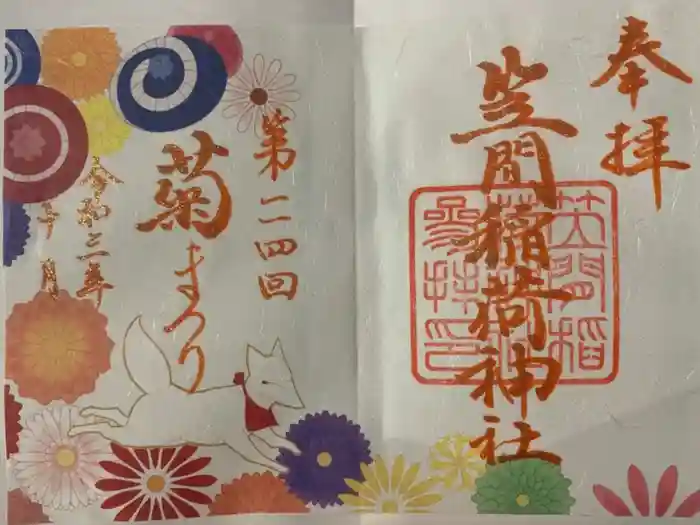 奉拝
笠間稲荷神社
笠間稲荷神社参拝印
第一一四回
菊まつり
令和三年
十月